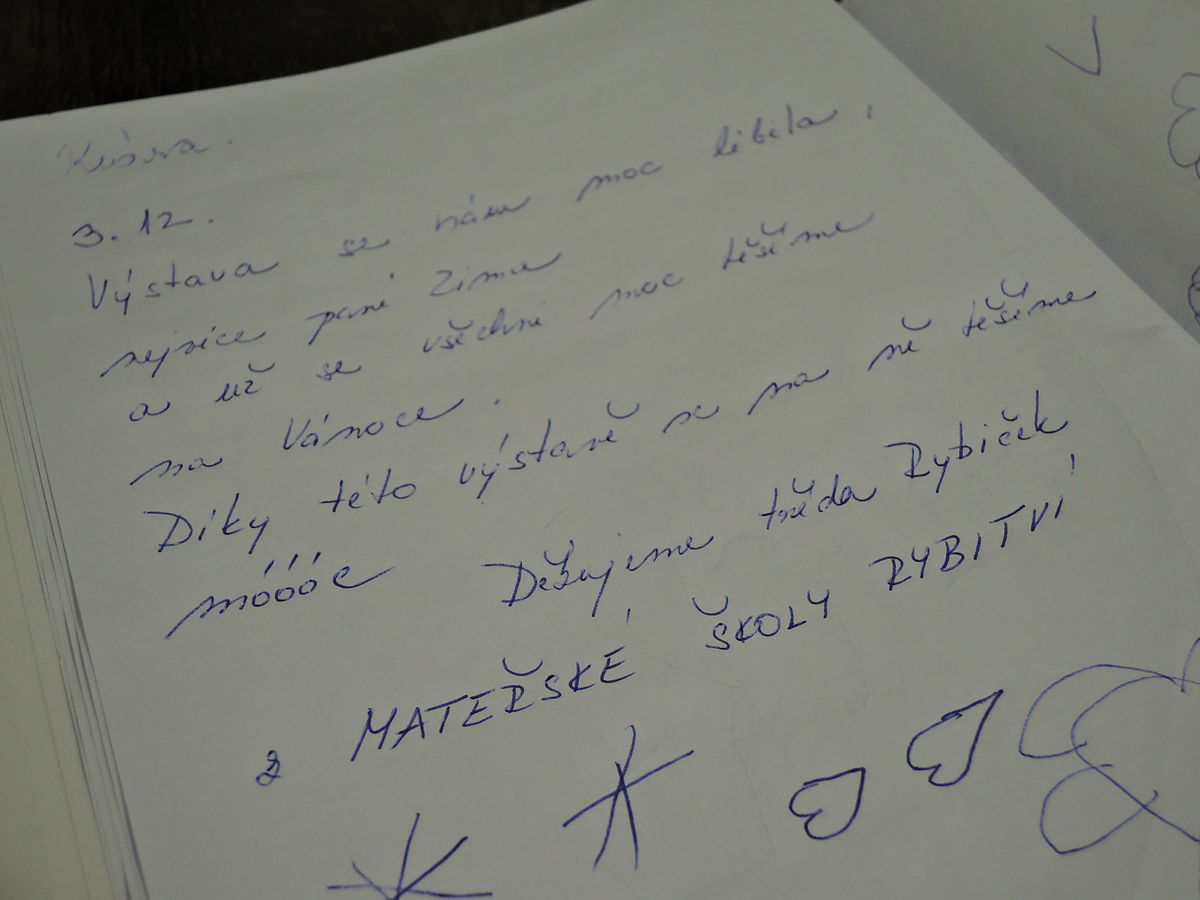 3. 12.
Výstava se nám moc líbila,
nejvíce paní Zima
a už se všichni moc těšíme
na Vánoce.
Díky této výstavě se na ně těšíme
móóóc Děkujeme třída Rybiček
z MATEŘSKÉ ŠKOLY RYBITVÍ